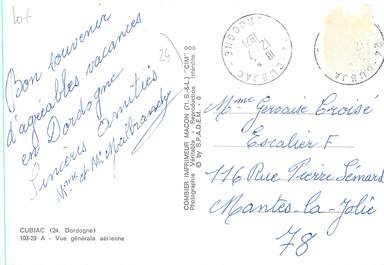 lot
24
Bon souvenir
d'agréables vacances
en Dordogne
Sincères Amitiés
Mme et Mr Malbranche
CUBJAC (24. Dordogne)
103-29 A - Vue générale aérienne
COMBIER IMPRIMEUR MACON (71. S.-&-L.) "CIM"
Photographie Véritable - Reproduction Interdite
© by S.P.A.D.E.M. - 0
CUBJAC
DORDOGNE
1971
CUBJAC
Mme Gervaise Croisé
Escalier F
116 Rue Pierre Sémard
Mantes-la-Jolie
78